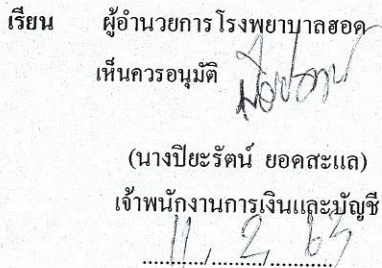 เรียน ผู้อำนวยการโรงพยาบาลฮอด
เห็นควรอนุมัติ
(นางปิยะรัตน์ ยอดสะแล)
เจ้าพนักงานการเงินและบัญชี
11 / 2 / 65